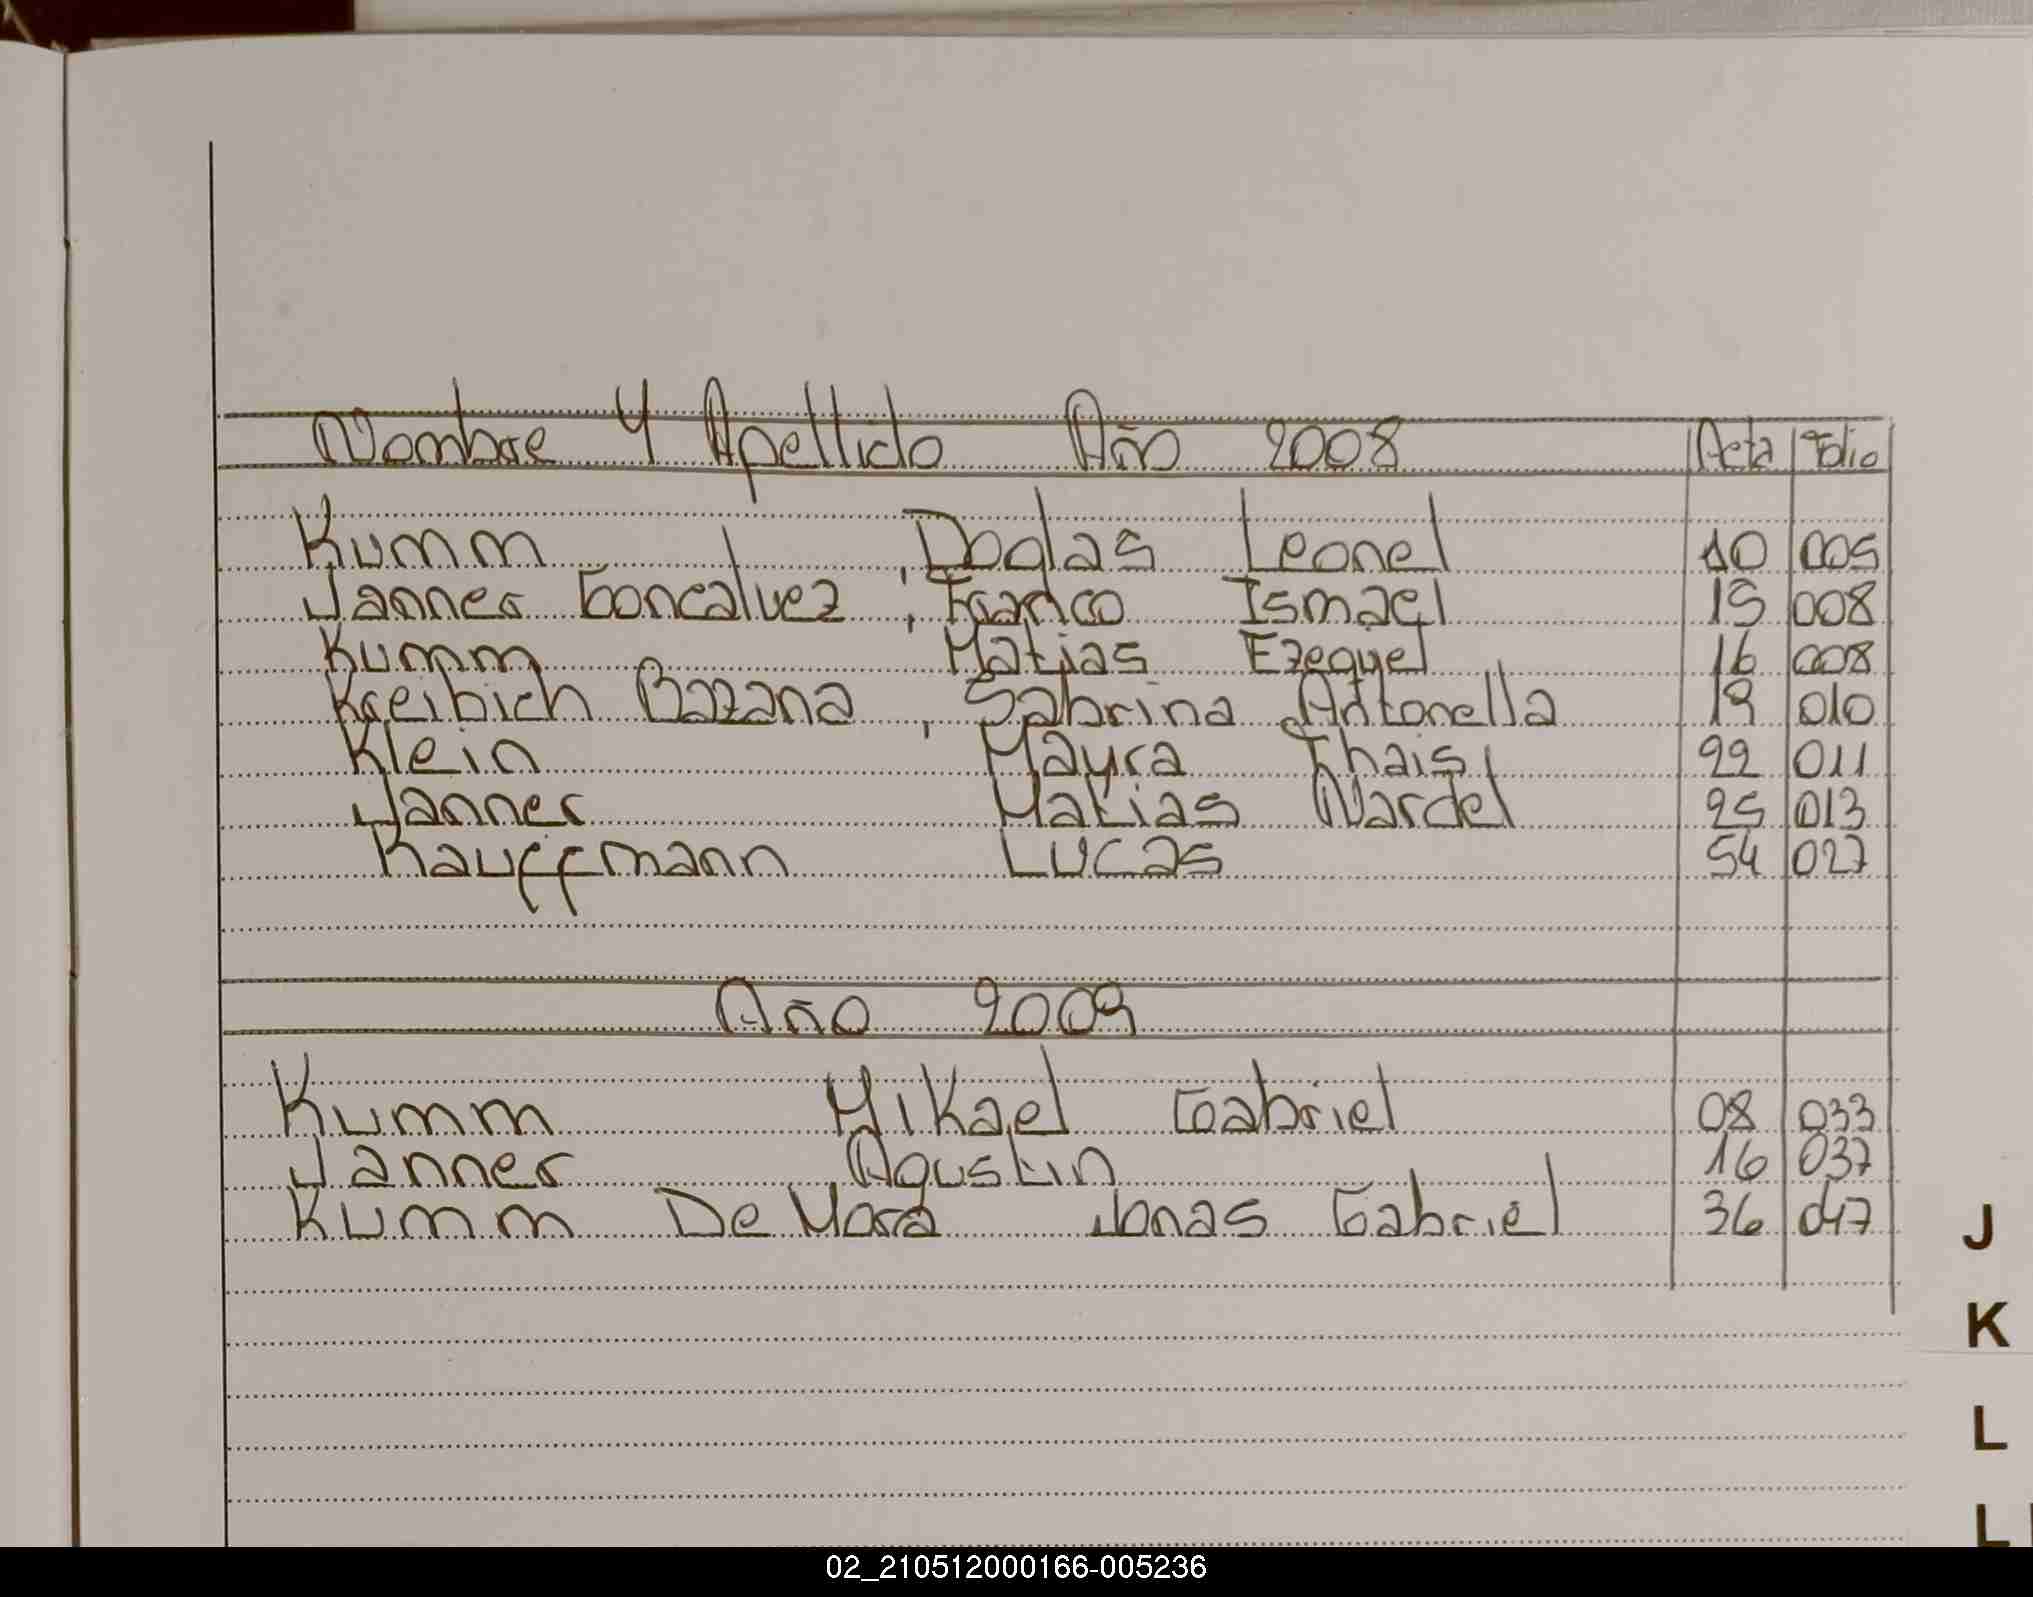 Nombre Y Apellido Año 2008 Acta Folio
Kumm , Doglas Leonel 10 005
Janner Goncalvez , Franco Ismael 15 008
Kumm Matias Ezequel 16 008
Kreibich Bazana , Sabrina Antonella 19 010
Klein Mayra Thais 22 011
Janner Matias Nardel 25 013
Kauffmann Lucas 54 027
Año 2009
Kumm Mikael Gabriel 08 033
Janner Agustin 16 037
Kumm De Mora Jonas Gabriel 36 047
J
K
L
02_210512000166-005236